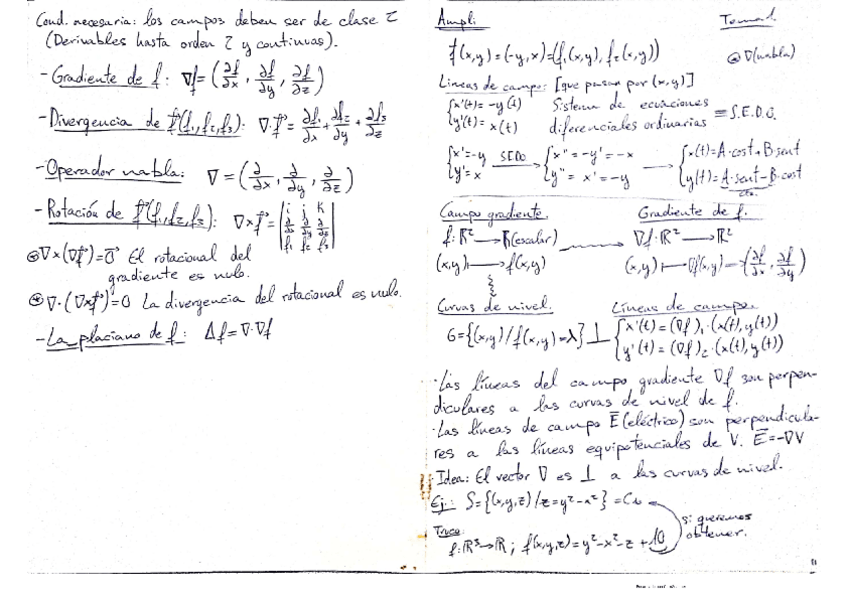 Cond. necesaria: los campos deben ser de clase 2
(Derivables hasta orden 2 y continuas).
- Gradiente de f: ∇f = (∂f/∂x, ∂f/∂y, ∂f/∂z)
- Divergencia de f⃗(f₁,f₂,f₃): ∇·f⃗ = ∂f₁/∂x + ∂f₂/∂y + ∂f₃/∂z
- Operador nabla: ∇ = (∂/∂x, ∂/∂y, ∂/∂z)
- Rotación de f⃗(f₁,f₂,f₃): ∇×f⃗ = |i j k; ∂/∂x ∂/∂y ∂/∂z; f₁ f₂ f₃|
∇×(∇f) = 0⃗ El rotacional del
gradiente es nulo.
∇·(∇×f⃗) = 0 La divergencia del rotacional es nulo.
- La placiano de f: Δf = ∇·∇f
Ampli: Tema 1.
f⃗(x,y) = (-y,x) = (f₁(x,y), f₂(x,y)) ∇(nabla)
Lineas de campo: [que pasan por (x,y)]
{x'(t) = -y(t) Sistema de ecuaciones
{y'(t) = x(t) diferenciales ordinarias ≡ S.E.D.O.
{x' = -y SEDO → {x'' = -y' = -x → {x(t) = A·cost + B·sent
{y' = x {y'' = x' = -y {y(t) = A·sent - B·cost
Campo gradiente. Gradiente de f.
f: ℝ² → ℝ(escalar) ∇f: ℝ² → ℝ²
(x,y) ↦ f(x,y) (x,y) ↦ ∇f(x,y) = (∂f/∂x, ∂f/∂y)
Curvas de nivel. Líneas de campo.
G = {(x,y) / f(x,y) = λ} ⊥ {x'(t) = (∇f)₁·(x(t), y(t))
{y'(t) = (∇f)₂·(x(t), y(t))
· Las líneas del campo gradiente ∇f son perpen-
diculares a las curvas de nivel de f.
· Las líneas de campo E⃗ (eléctrico) son perpendicula-
res a las líneas equipotenciales de V. E⃗ = -∇V
· Idea: El vector ∇ es ⊥ a las curvas de nivel.
Ej.: S = {(x,y,z) / z = y² - x²} = C₁₀
Truco: si queremos
f: ℝ³ → ℝ; f(x,y,z) = y² - x² - z + 10 obtener.